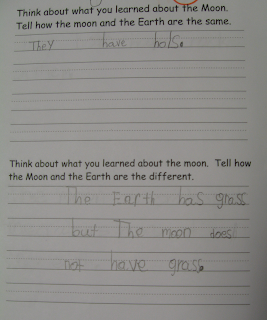 Think about what you learned about the Moon.
Tell how the moon and the Earth are the same.
They have hols.
Think about what you learned about the moon. Tell how
the Moon and the Earth are the different.
The Earth has grass
but The moon does
not have grass.